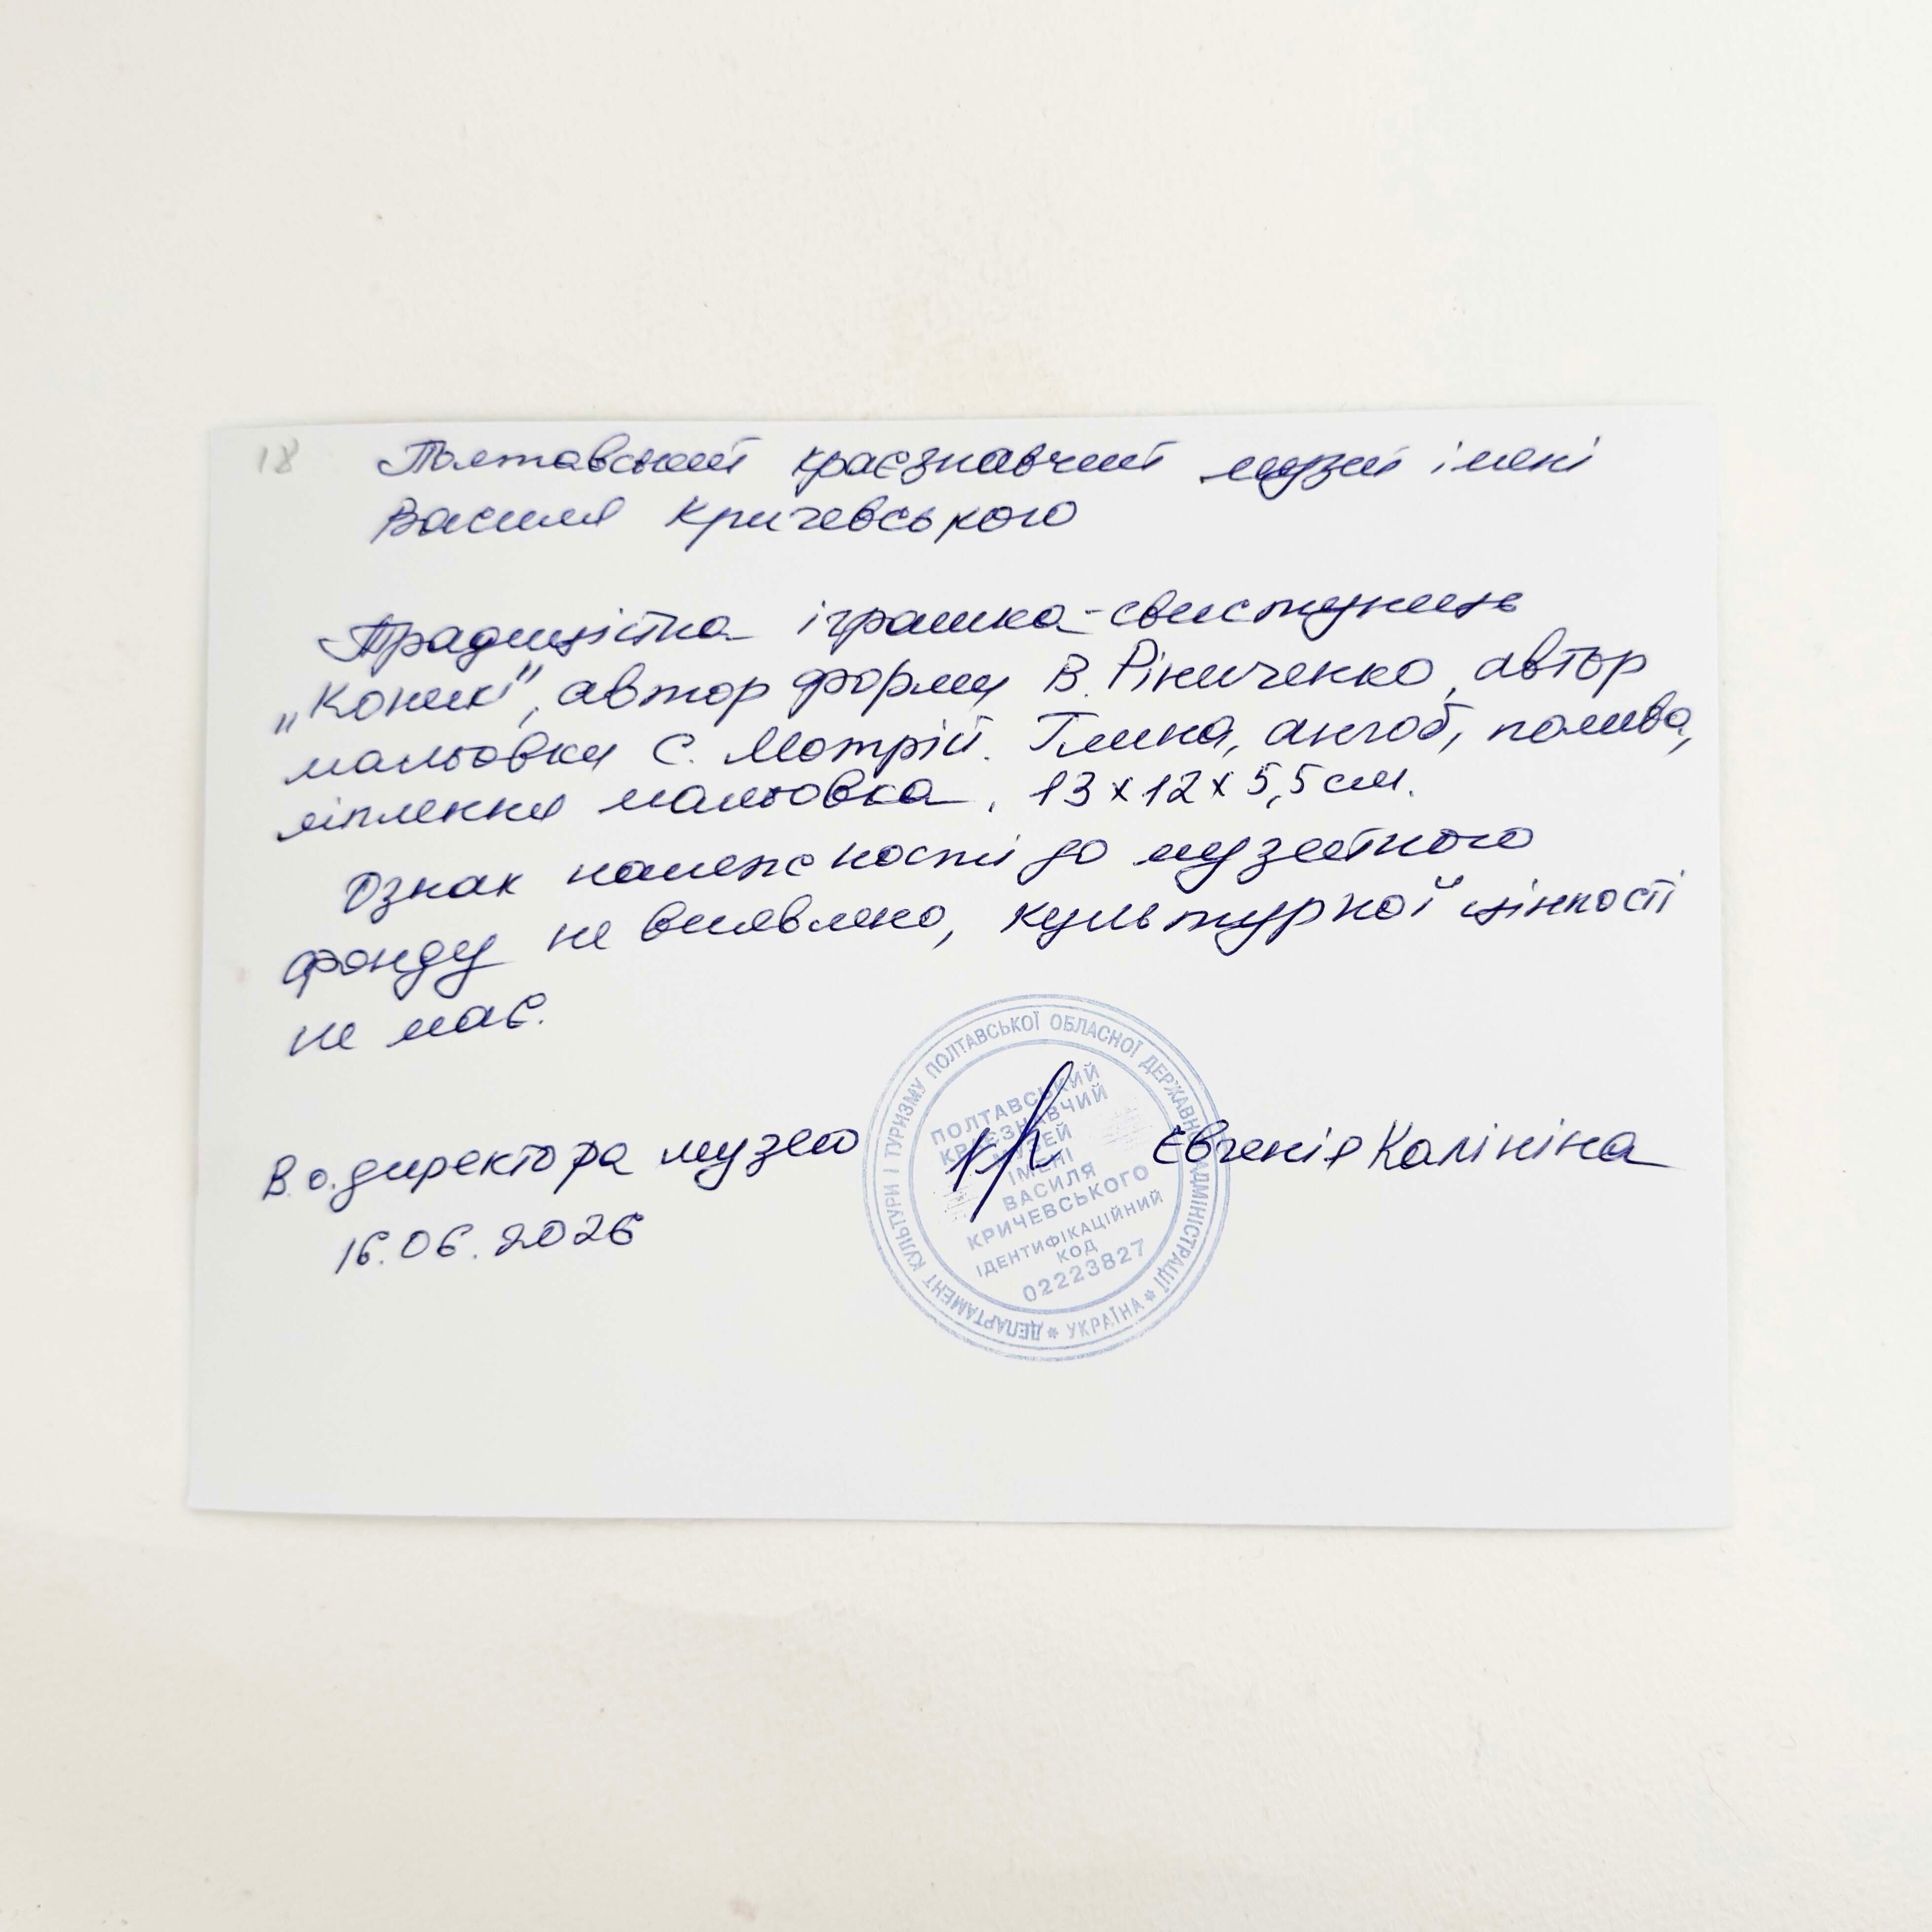 18
Полтавський краєзнавчий музей імені
Василя Кричевського
Традиційна іграшка-свистунець
„Коник", автор форми В. Рінниченко, автор
мальовки С. Мотрій. Глина, ангоб, полива,
ліплення мальовка. 13х12х5,5 см.
Ознак належності до музейного
фонду не виявлено, культурної цінності
не має.
В.о. директора музею Євгенія Калініна
16.06.2026
ДЕПАРТАМЕНТ КУЛЬТУРИ І ТУРИЗМУ ПОЛТАВСЬКОЇ ОБЛАСНОЇ ДЕРЖАВНОЇ АДМІНІСТРАЦІЇ * УКРАЇНА *
ПОЛТАВСЬКИЙ
КРАЄЗНАВЧИЙ
МУЗЕЙ
ІМЕНІ
ВАСИЛЯ
КРИЧЕВСЬКОГО
ІДЕНТИФІКАЦІЙНИЙ
КОД
02223827